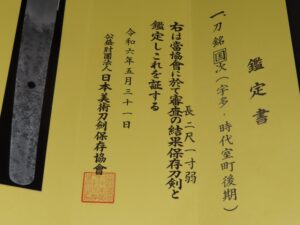 鑑定書
一、刀 銘 国次(宇多・時代室町後期)
長二尺一寸弱
右は當協會に於て審査の結果保存刀剣と
鑑定しこれを証する
令和六年五月三十一日
公益財団法人日本美術刀剣保存協會